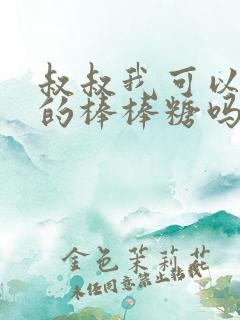 叔叔我可以
的棒棒糖吗
金色茉莉花
未经同意禁止转载